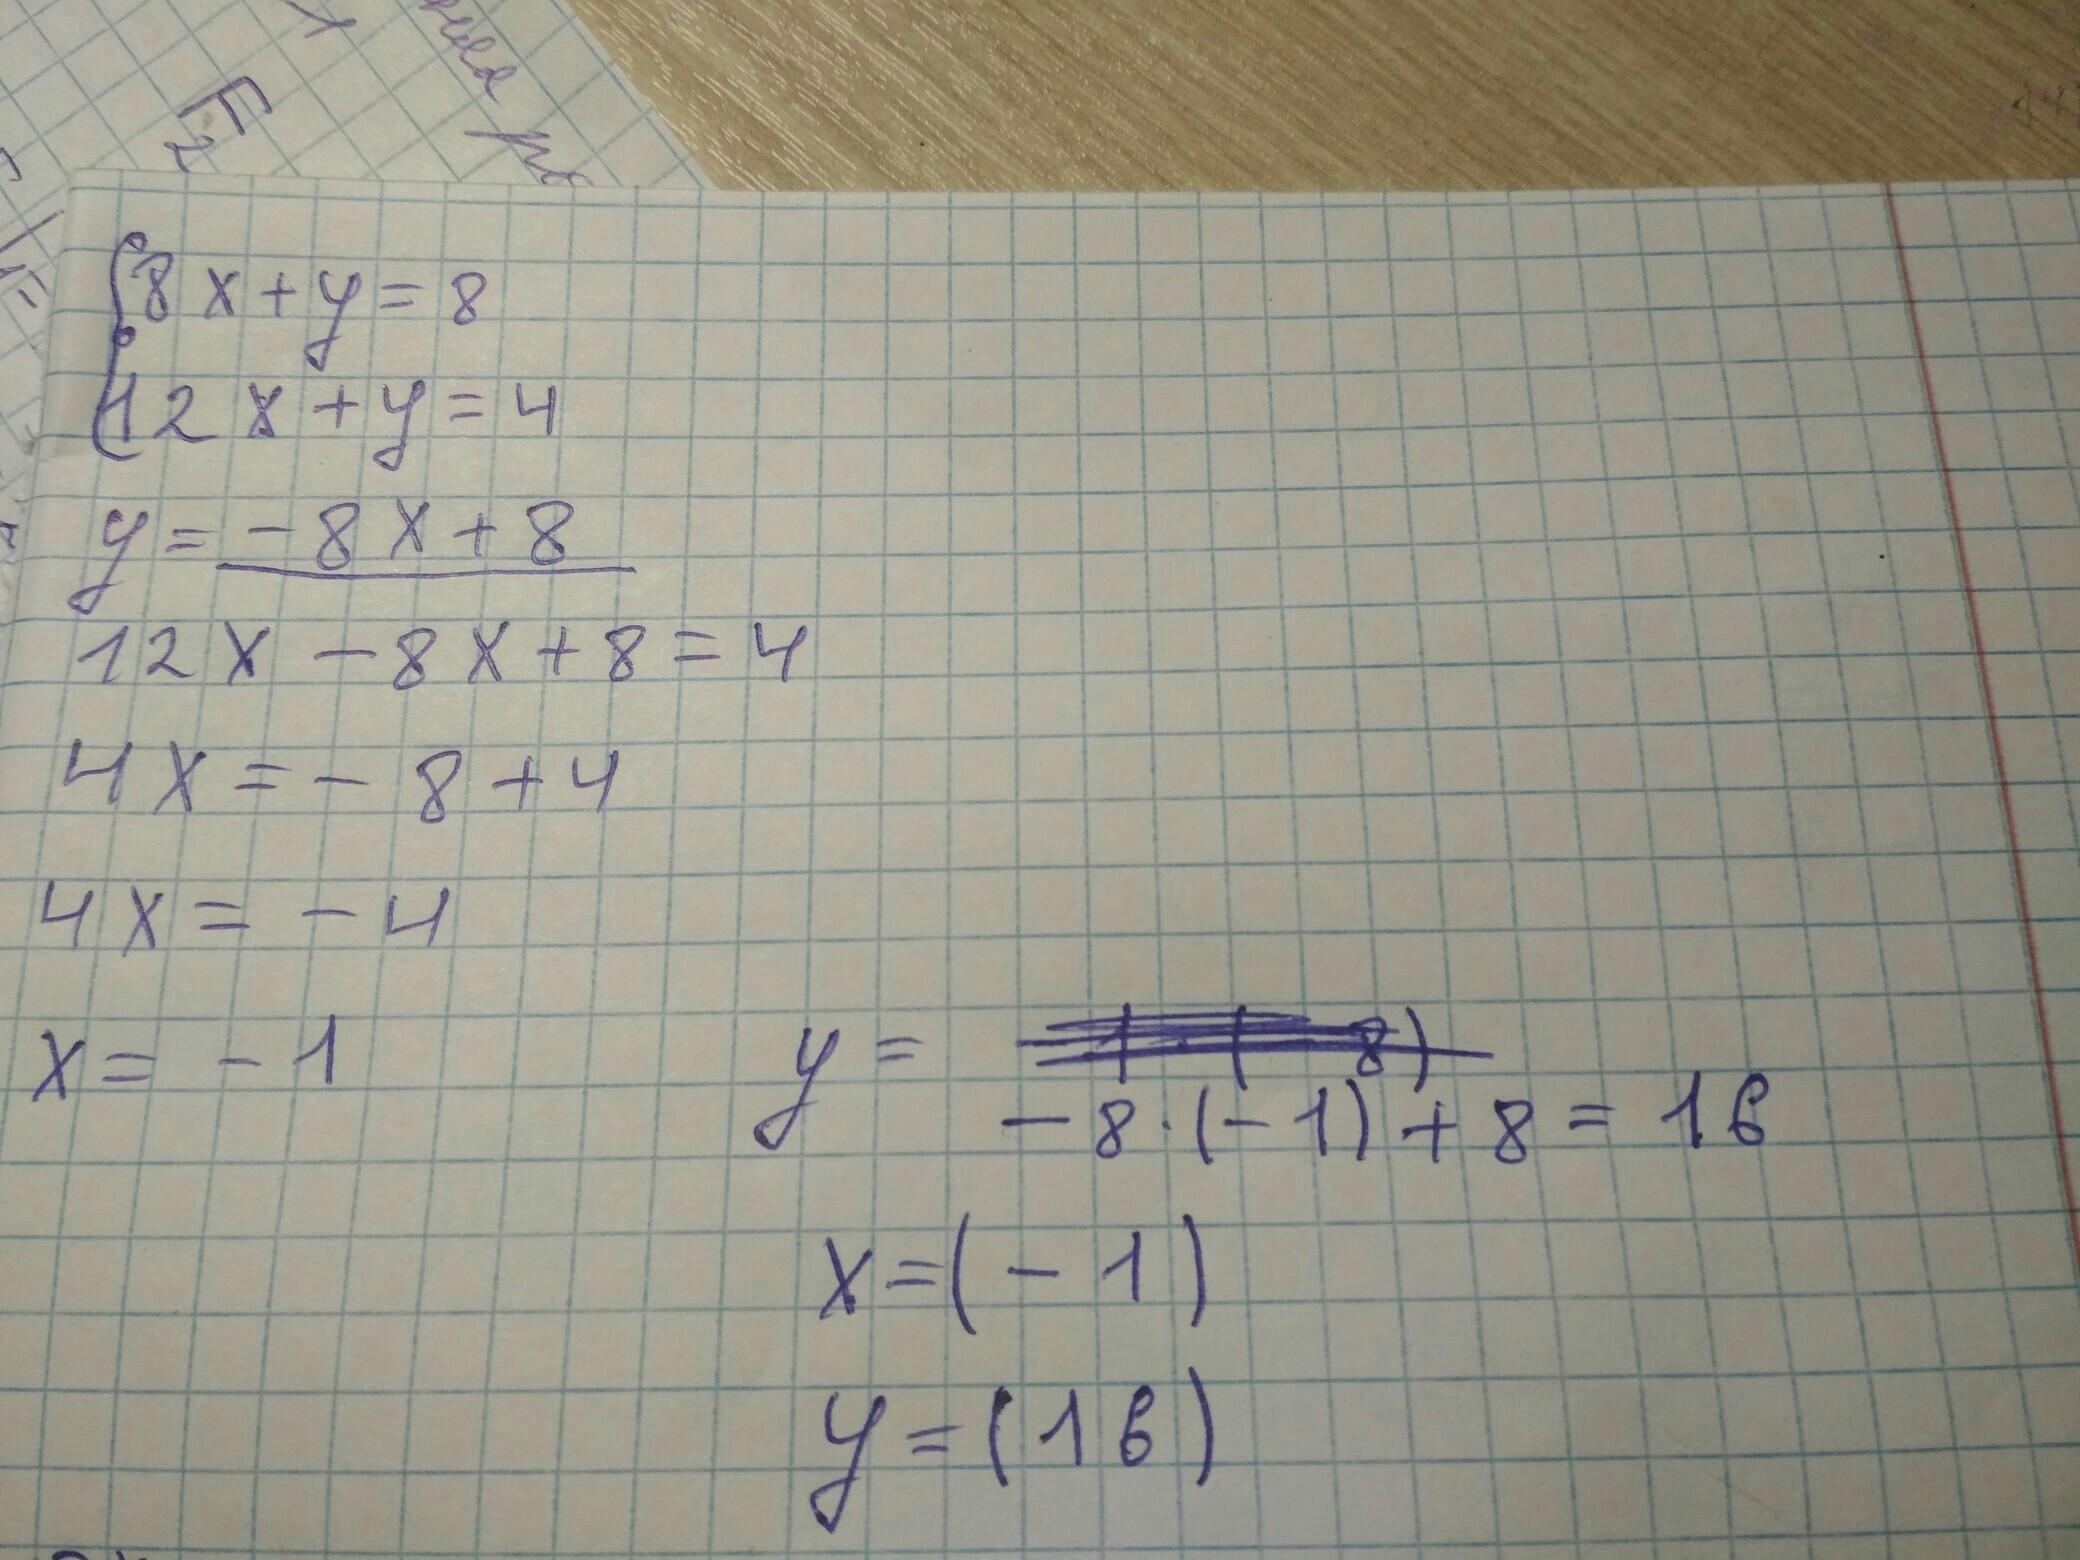 1
F₂
8x+y=8
12x+y=4
y=-8x+8
12x-8x+8=4
4x=-8+4
4x=-4
x=-1
y=
-8·(-1)+8=16
x=(-1)
y=(16)